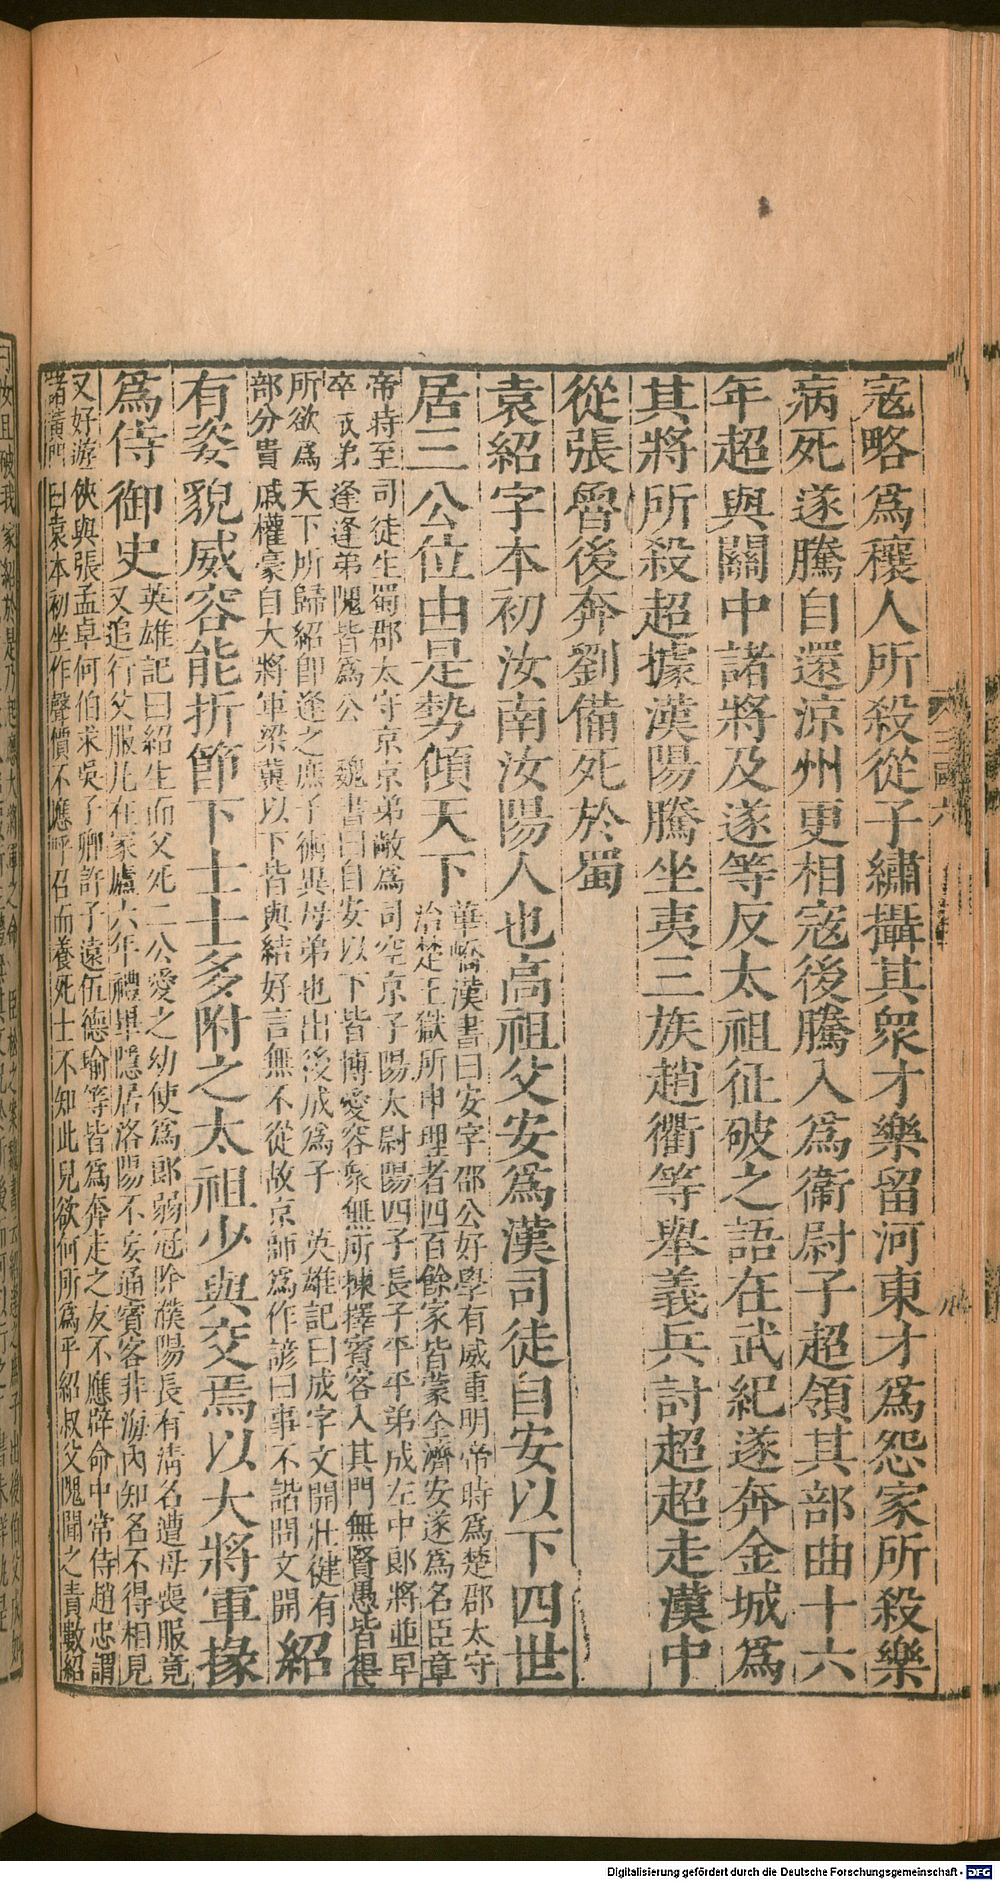 寇略爲穰人所殺從子繡攝其衆才樂留河東才爲怨家所殺樂
病死遂騰自還涼州更相寇後騰入爲衞尉子超領其部曲十六
年超與關中諸將及遂等反太祖征破之語在武紀遂奔金城爲
其將所殺超據漢陽騰坐夷三族趙衢等舉義兵討超超走漢中
從張魯後奔劉備死於蜀
袁紹字本初汝南汝陽人也高祖父安爲漢司徒自安以下四世
居三公位由是勢傾天下
華嶠漢書曰安字邵公好學有威重明帝時爲楚郡太守
治楚王獄所申理者四百餘家皆蒙全濟安遂爲名臣章
帝時至司徒生蜀郡太守京京弟敞爲司空京子陽太尉陽四子長子平平弟成左中郎將並早
卒成弟逢逢弟隗皆爲公 魏書曰自安以下皆博愛容衆無所揀擇賓客入其門無賢愚皆得
所欲爲天下所歸紹卽逢之庶子術異母弟也出後成爲子 英雄記曰成字文開壯健有
部分貴戚權豪自大將軍梁冀以下皆與結好言無不從故京師爲作諺曰事不諧問文開
紹
有姿貌威容能折節下士士多附之太祖少與交焉以大將軍掾
爲侍御史
英雄記曰紹生而父死二公愛之幼使爲郎弱冠除濮陽長有淸名遭母喪服竟
又追行父服凡在冢廬六年禮畢隱居洛陽不妄通賓客非海內知名不得相見
又好游俠與張孟卓何伯求吳子卿許子遠伍德瑜等皆爲奔走之友不應辟命中常侍趙忠謂
諸黃門曰袁本初坐作聲價不應呼召而養死士不知此兒欲何所爲乎紹叔父隗聞之責數紹
三國六
九
Digitalisierung gefördert durch die Deutsche Forschungsgemeinschaft - DFG